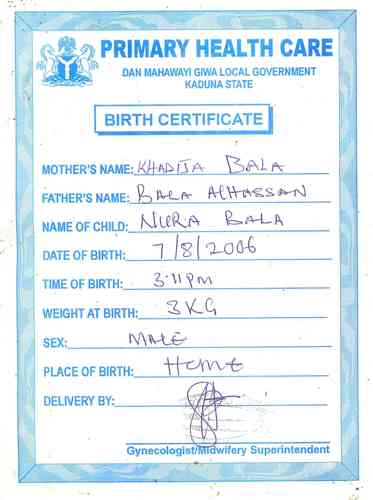 PRIMARY HEALTH CARE
DAN MAHAWAYI GIWA LOCAL GOVERNMENT
KADUNA STATE
BIRTH CERTIFICATE
MOTHER'S NAME: KHADIJA BALA
FATHER'S NAME: BALA AlHASSAN
NAME OF CHILD: NURA BALA
DATE OF BIRTH: 7/8/2006
TIME OF BIRTH: 3:11PM
WEIGHT AT BIRTH: 3KG
SEX: MALE
PLACE OF BIRTH: HOME
DELIVERY BY:
Gynecologist/Midwifery Superintendent